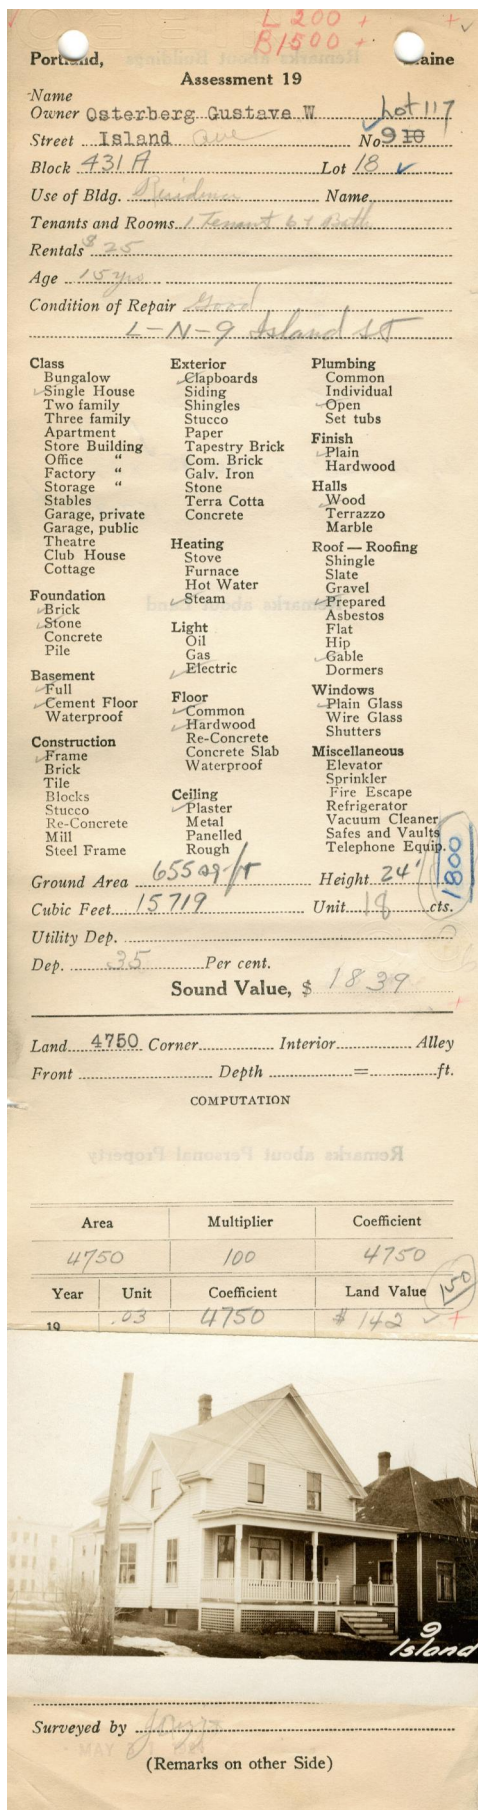 L 200 +
B 1500 +
Portland, Maine
Assessment 19
Name
Owner Osterberg Gustave W Lot 117
Street Island Ave No 9 10
Block 431 A Lot 18
Use of Bldg. Residence Name
Tenants and Rooms 1 Tenant 6 + Bath
Rentals $ 25
Age 15 yrs
Condition of Repair Good
L-N-9 Island St
Class
Bungalow
Single House
Two family
Three family
Apartment
Store Building
Office "
Factory "
Storage "
Stables
Garage, private
Garage, public
Theatre
Club House
Cottage
Foundation
Brick
Stone
Concrete
Pile
Basement
Full
Cement Floor
Waterproof
Construction
Frame
Brick
Tile
Blocks
Stucco
Re-Concrete
Mill
Steel Frame
Exterior
Clapboards
Siding
Shingles
Stucco
Paper
Tapestry Brick
Com. Brick
Galv. Iron
Stone
Terra Cotta
Concrete
Heating
Stove
Furnace
Hot Water
Steam
Light
Oil
Gas
Electric
Floor
Common
Hardwood
Re-Concrete
Concrete Slab
Waterproof
Ceiling
Plaster
Metal
Panelled
Rough
Plumbing
Common
Individual
Open
Set tubs
Finish
Plain
Hardwood
Halls
Wood
Terrazzo
Marble
Roof — Roofing
Shingle
Slate
Gravel
Prepared
Asbestos
Flat
Hip
Gable
Dormers
Windows
Plain Glass
Wire Glass
Shutters
Miscellaneous
Elevator
Sprinkler
Fire Escape
Refrigerator
Vacuum Cleaner
Safes and Vaults
Telephone Equip.
1800
Ground Area 655 sq-ft Height 24'
Cubic Feet 15719 Unit 18 cts.
Utility Dep.
Dep. 35 Per cent.
Sound Value, $ 1839
Land 4750 Corner Interior Alley
Front Depth = ft.
COMPUTATION
Area Multiplier Coefficient
4750 100 4750
Year Unit Coefficient Land Value 150
19 .03 4750 $ 142
9
Island
Surveyed by
(Remarks on other Side)